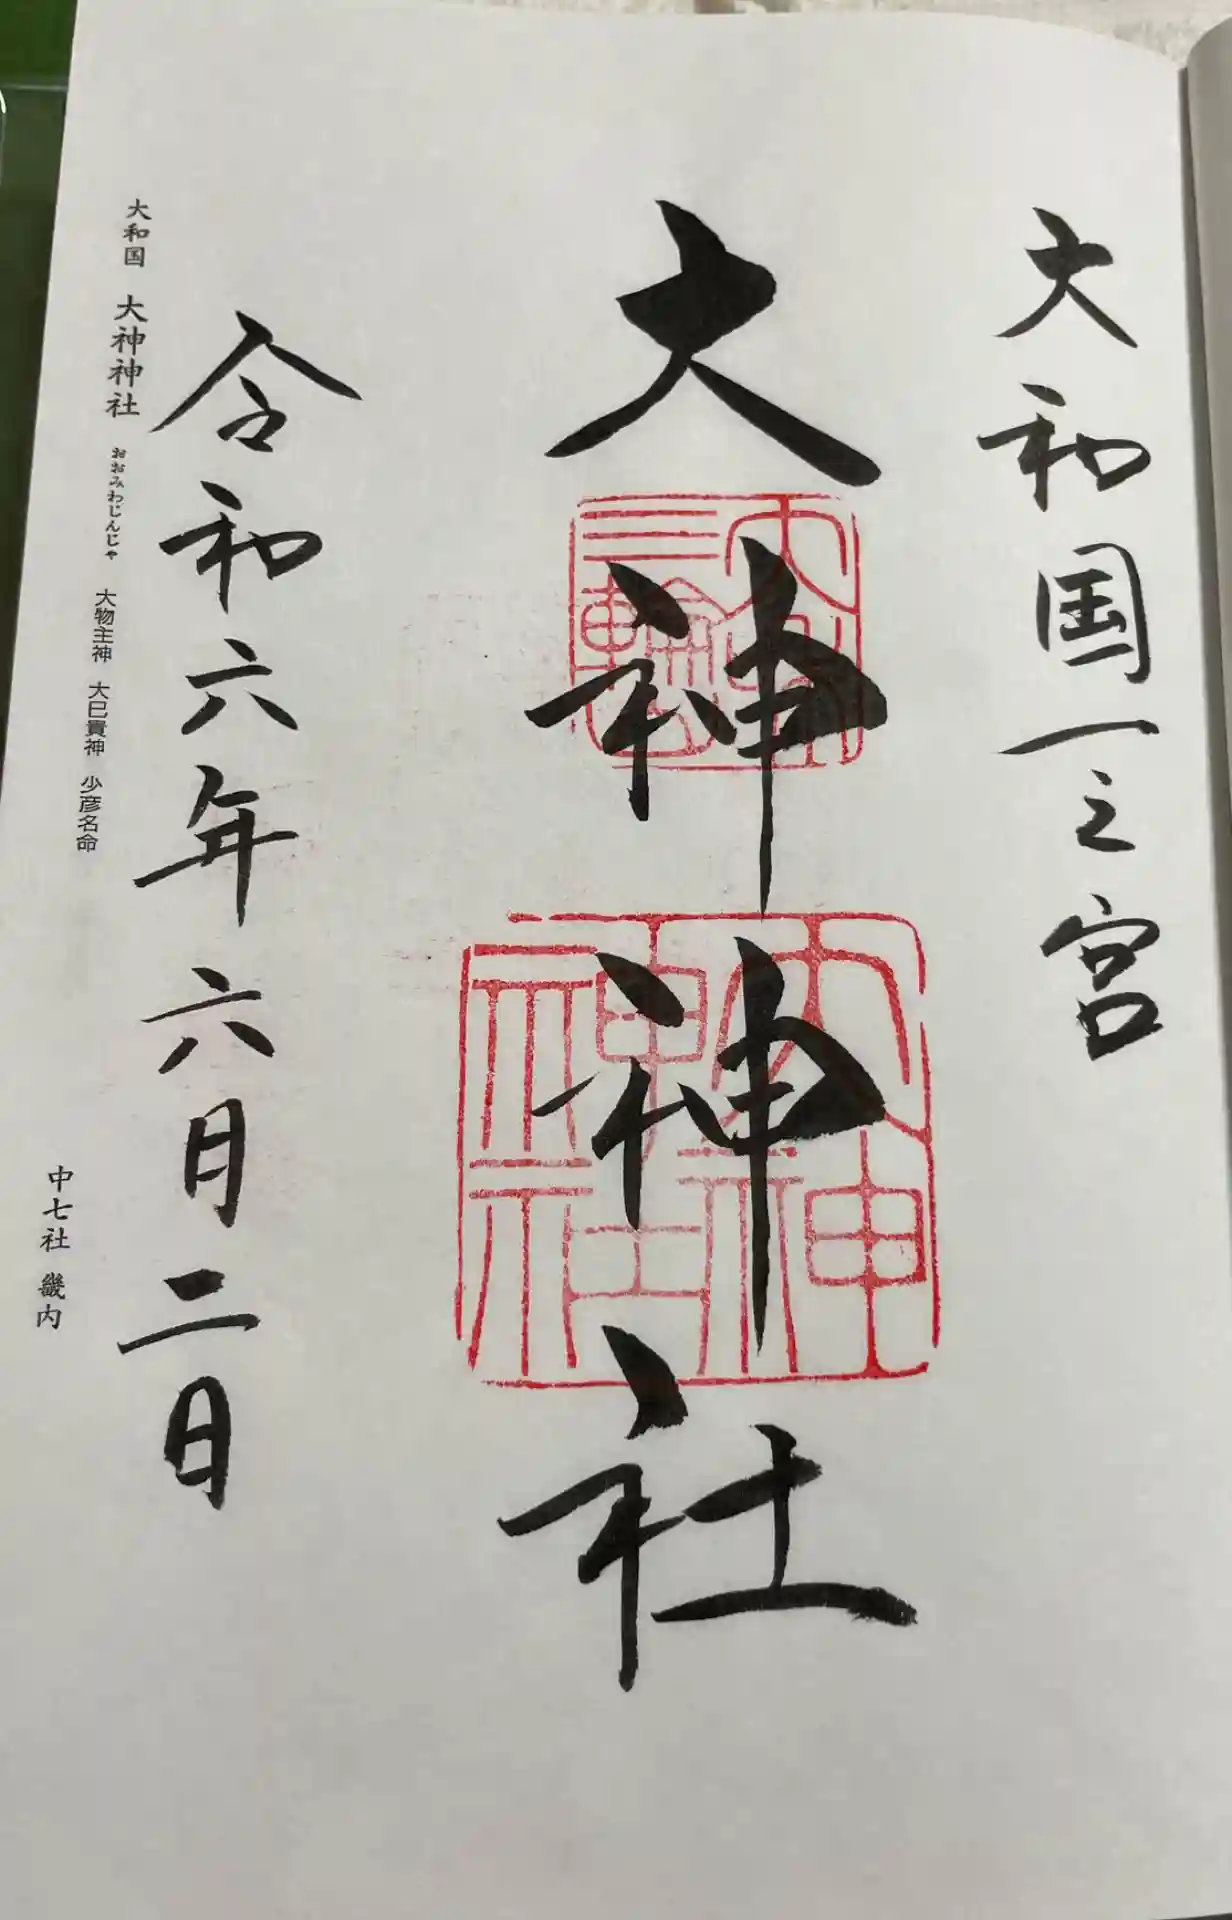 大和国一之宮
大神神社
大神神社
令和六年六月二日
大和国 大神神社 おおみわじんじゃ 大物主神 大巳貴神 少彦名命
中七社 畿内